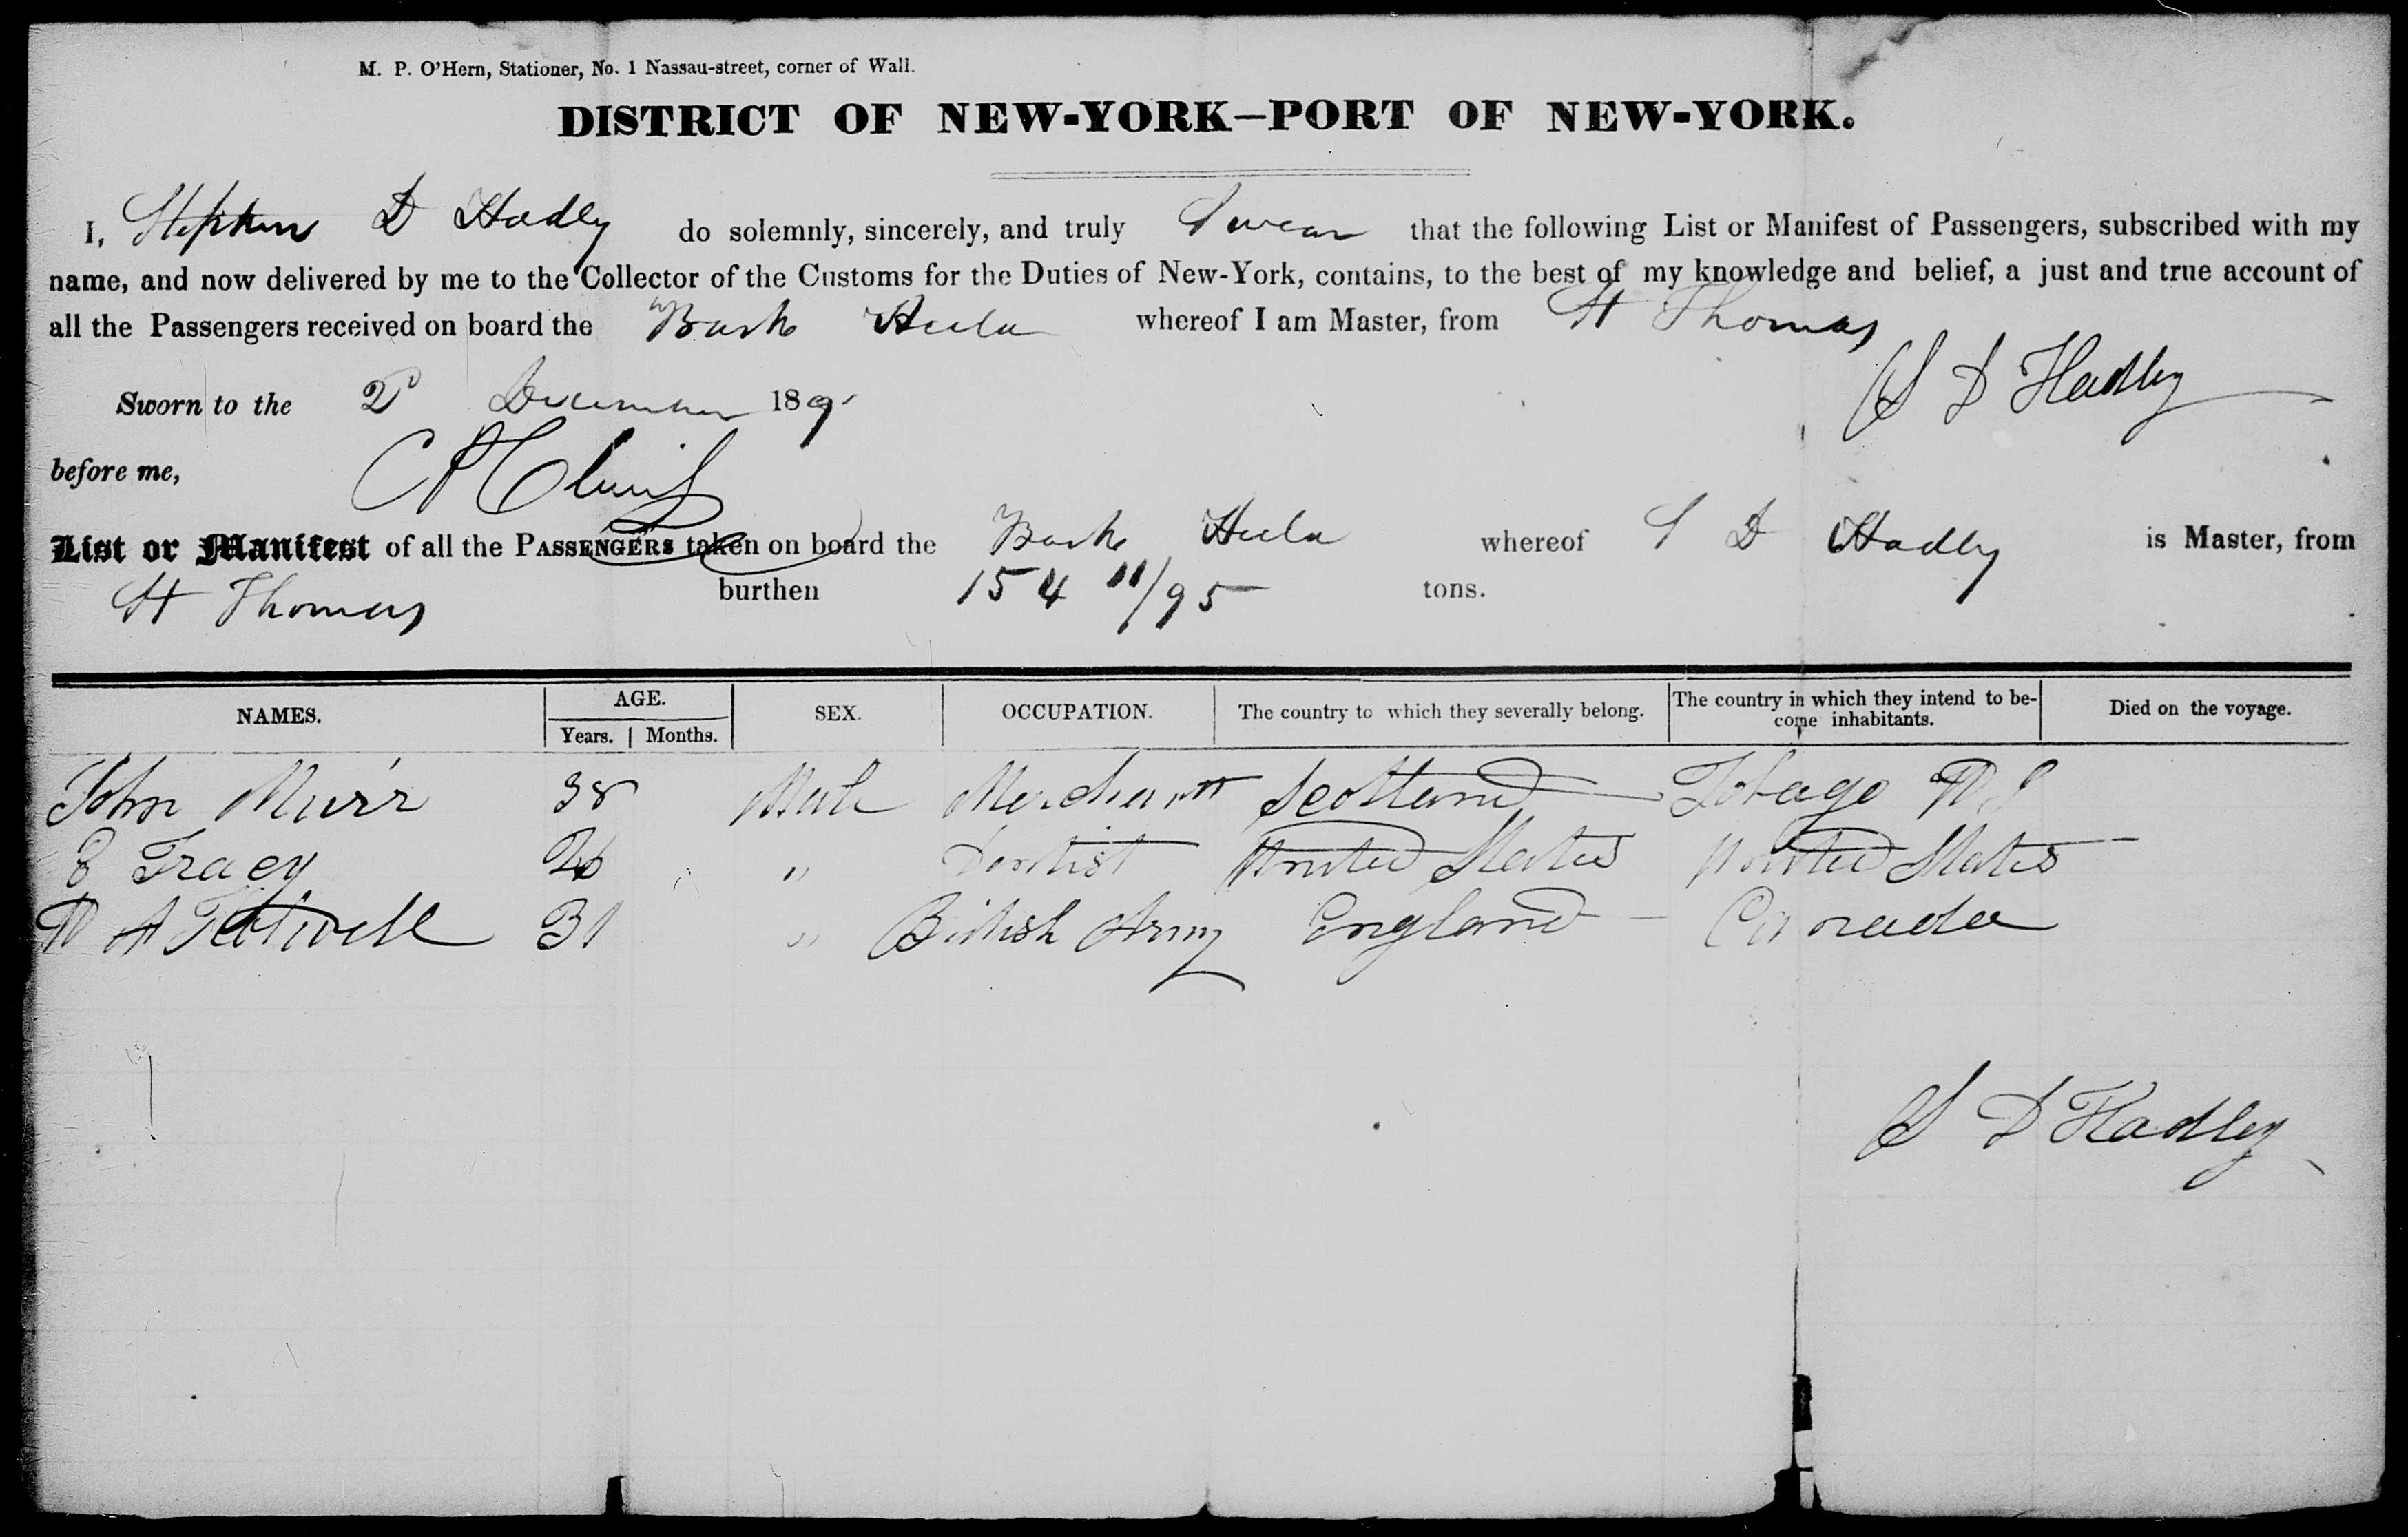 M. P. O'Hern, Stationer, No. 1 Nassau-street, corner of Wall.
DISTRICT OF NEW-YORK—PORT OF NEW-YORK.
I, Stephen D Hadley do solemnly, sincerely, and truly Swear that the following List or Manifest of Passengers, subscribed with my
name, and now delivered by me to the Collector of the Customs for the Duties of New-York, contains, to the best of my knowledge and belief, a just and true account of
all the Passengers received on board the Bark whereof I am Master, from St Thomas
S D Hadley
Sworn to the 2d December 18
before me,
List or Manifest of all the PASSENGERS taken on board the Bark whereof S D Hadley is Master, from
St Thomas burthen 154 11/95 tons.
NAMES. AGE. SEX. OCCUPATION. The country to which they severally belong. The country in which they intend to be- Died on the voyage.
Years. Months. come inhabitants.
John Muir 38 Male Merchant Scotland Tobago W I
E Tracy 26 " Dentist United States United States
W A 31 " British Army England Canada
S D Hadley